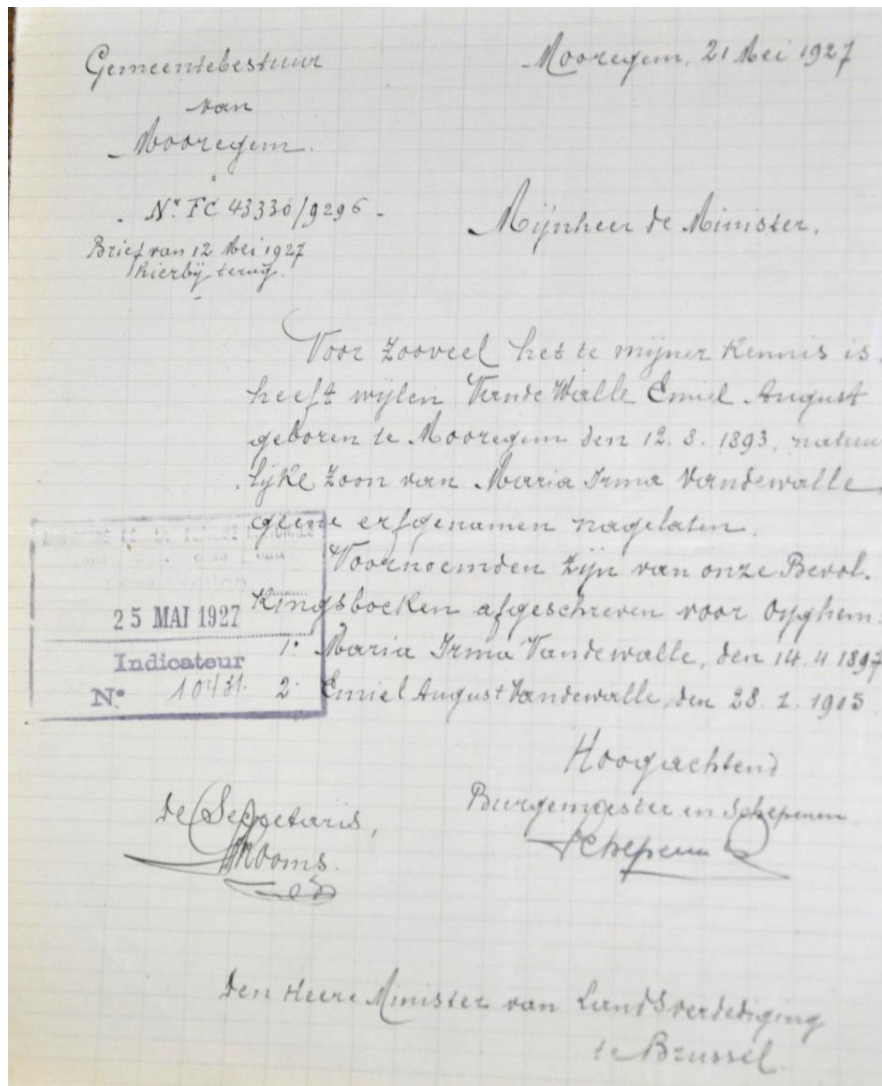 Gemeentebestuur
van
Mooregem.
Mooregem, 21 Mei 1927
N.r FC 43330/9296.
Brief van 12 Mei 1927
hierbij terug.
Mijnheer de Minister.
Voor zooveel het te mijner Kennis is,
heeft wijlen Vande Walle Emiel August
geboren te Mooregem den 12. 8. 1893, natuu
lijke zoon van Maria Irma Vandewalle,
geene erfgenamen nagelaten.
Voornoemden zijn van onze Bevol.
Kingsboeken afgeschreven voor Oyghem:
1. Maria Irma Vandewalle, den 14. 4 1897
2. Emiel August Vandewalle, den 28. 2. 1905
25 MAI 1927
Indicateur
N° 10431.
Hoogachtend
Burgemeester en Schepenen
de Secretaris,
Den Heere Minister van Landsverdediging
te Brussel.